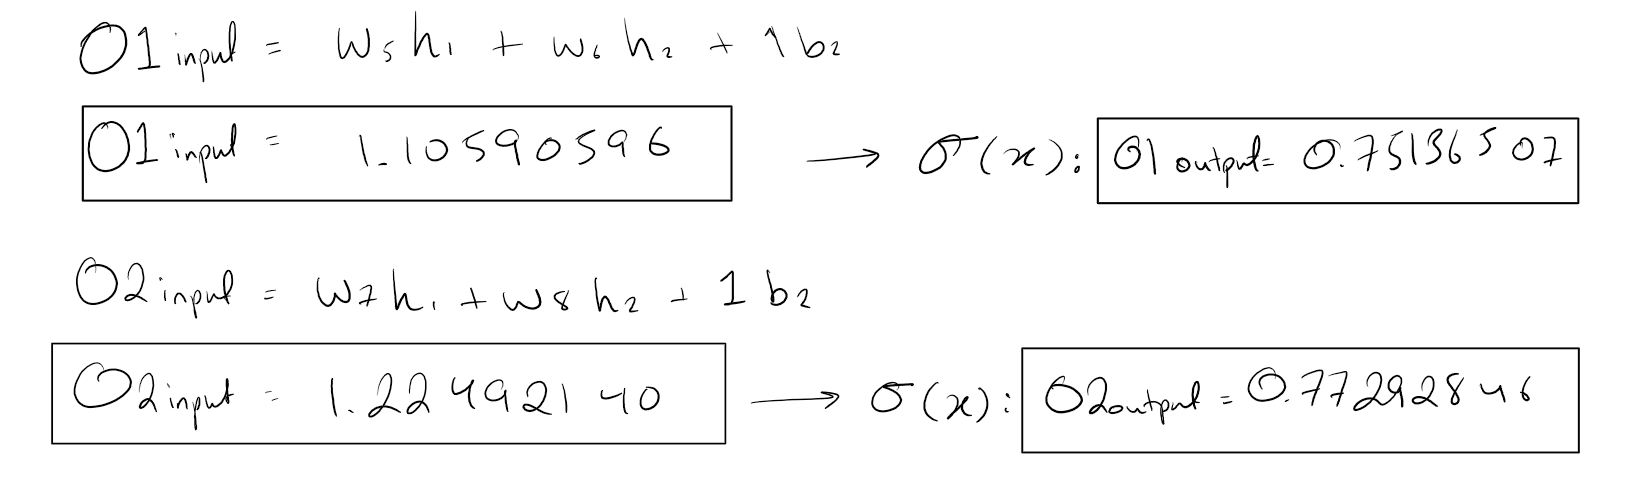 O1 input = w₅h₁ + w₆h₂ + 1b₂
O1 input = 1.10590596 → σ(x): O1 output = 0.75136507
O2 input = w₇h₁ + w₈h₂ + 1b₂
O2 input = 1.22492140 → σ(x): O2 output = 0.77292846